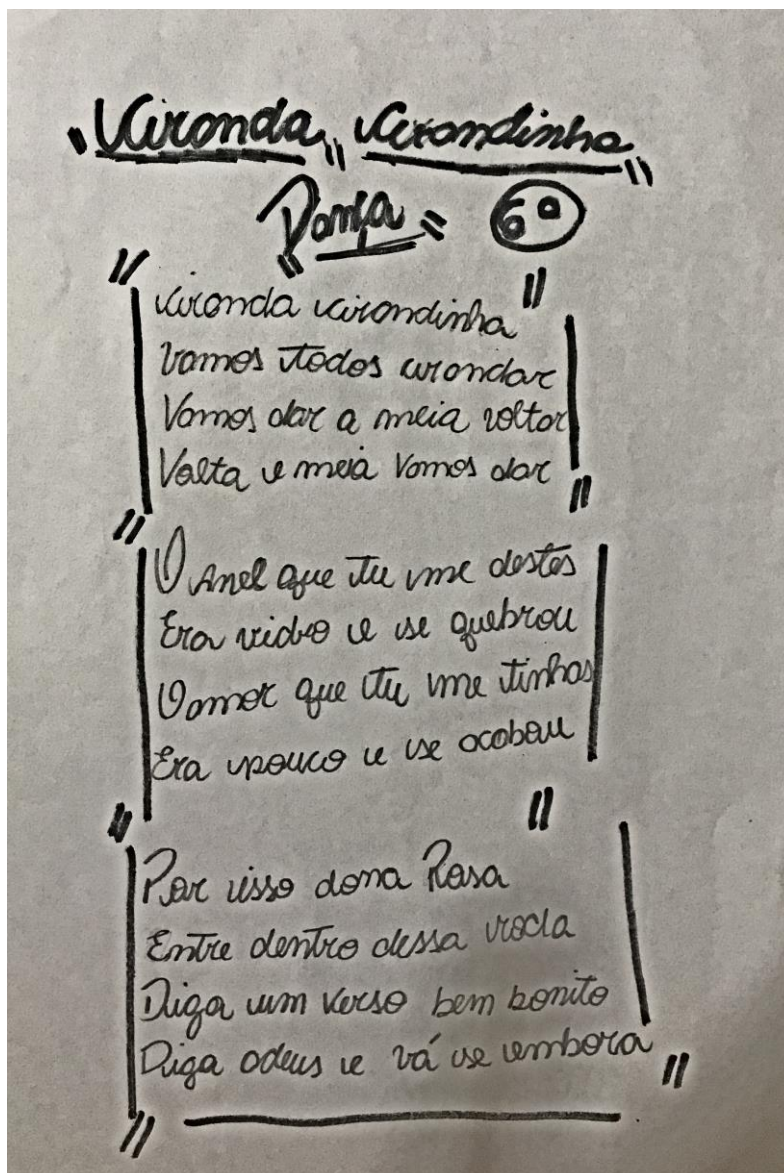 "Ciranda" Cirandinha"
"Dança" 6º
" Ciranda Cirandinha "
Vamos todos cirandar
Vamos dar a meia voltar
Volta e meia Vamos dar "
" O Anel que tu me destes
Era vidro e se quebrou
O amor que tu me tinhas
Era pouco e se acabou
" Por isso dona Rosa "
Entre dentro dessa roda
Diga um verso bem bonito
Diga adeus e vá se embora "
"